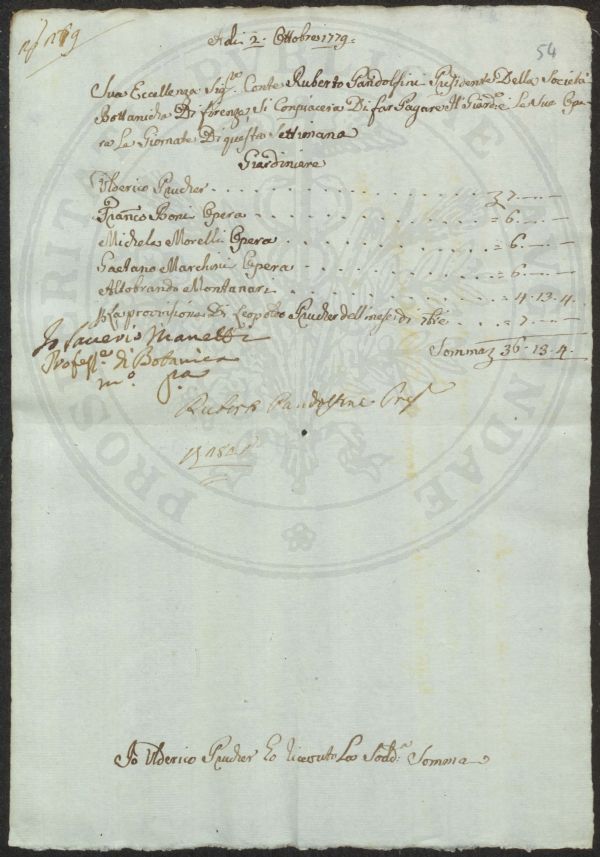 54
Adi 2. Ottobre 1779.
Sua Eccellenza Sig.re Conte Ruberto Pandolfini Presidente Della Società
Bottanicha Di firenze, Si Conpiacera Di far Pagare Il Giardre Le Sue Ope-
ra Le Giornate Di questa Settimana
Giardiniere
Ulderico Prucher . . . 7
Franco Boni Opera . . . = 6
Michele Morelli Opera . . . = 6
Gaetano Marchini Opera . . . = 6
Aldobrando Montanari . . . = 4. 13. 4
La provisione Di Leopoldo Prucher dell mese di 7bre . . = 7
Somma 36. 13. 4.
Io Saverio Manetti
Profess.e di Botanica
m.o p.a
Ruberto Pandolfini Pres
Io Ulderico Prucher Ho riceuto La Sodd.a Somma
PROSPERITATI PUBLICAE AUGENDAE